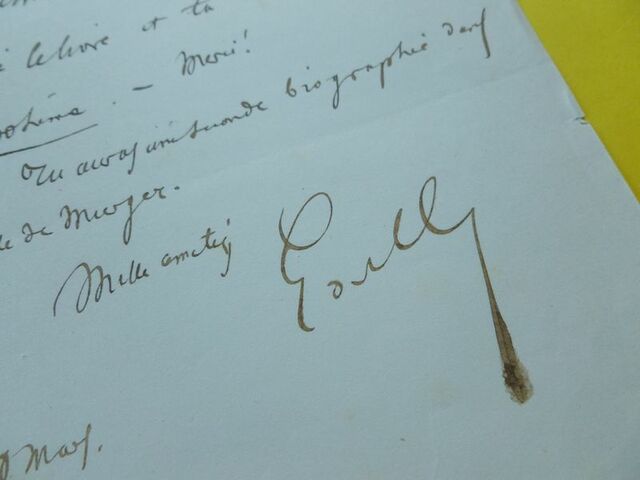 le livre et ta
Bohème. — Merci!
Tu auras une seconde biographie dans
de Murger.
Mille amitiés
Mars.